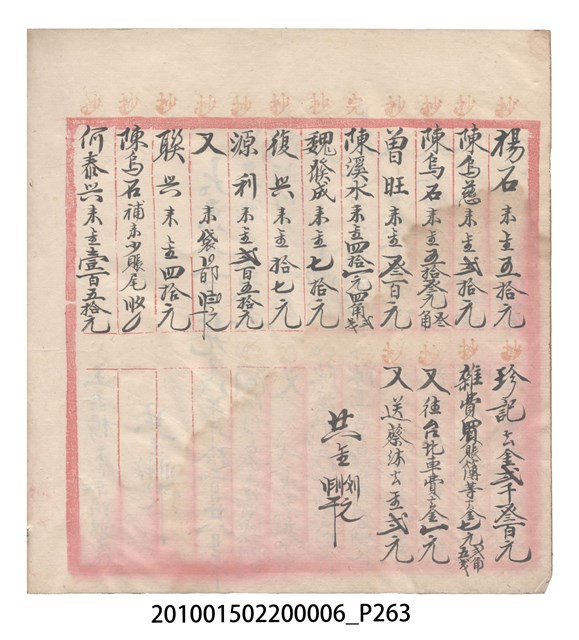 楊石來去五拾元
陳烏慈來去弍拾元
陳烏石來去五拾叁元叁角
曾旺來去叁百元
陳溪水來去四拾一元四角弍
魏聯成來去七拾元
復興來去拾七元
源利來去弍百五拾元
又來袋
聯興來去四拾元
陳烏石補來少賬尾收
何泰興來去壹百五拾元
珍記去金弍千叁百元
雜費買賬簿等去金七元弍角五
又往台北車費去金一元
又送蔡沐去金弍元
共金
201001502200006_P263